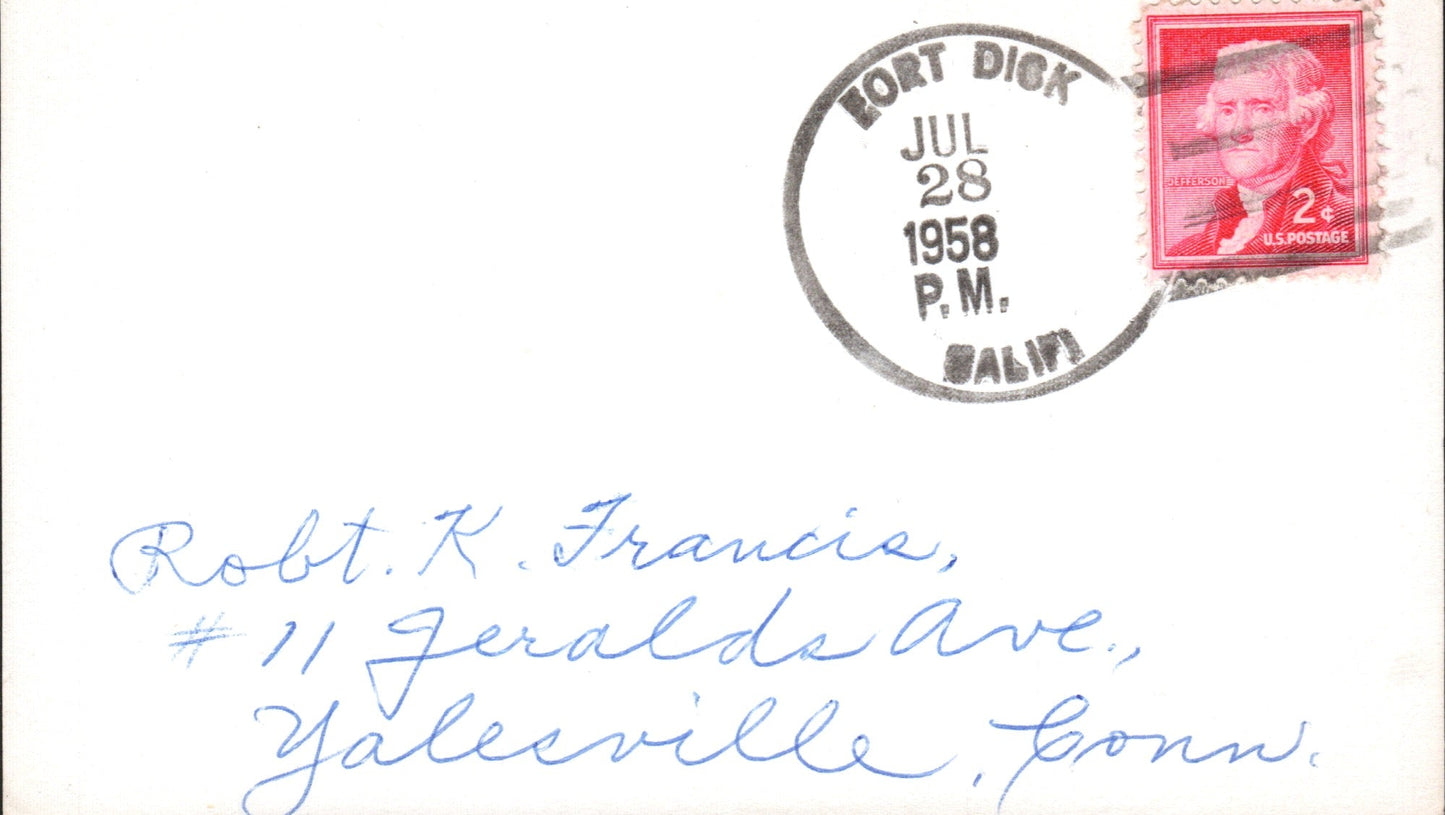 FORT DICK
JUL
28
1958
P.M.
CALIF.
JEFFERSON
2¢
U.S. POSTAGE
Robt. K. Francis,
# 11 Geralds Ave.,
Yalesville, Conn.